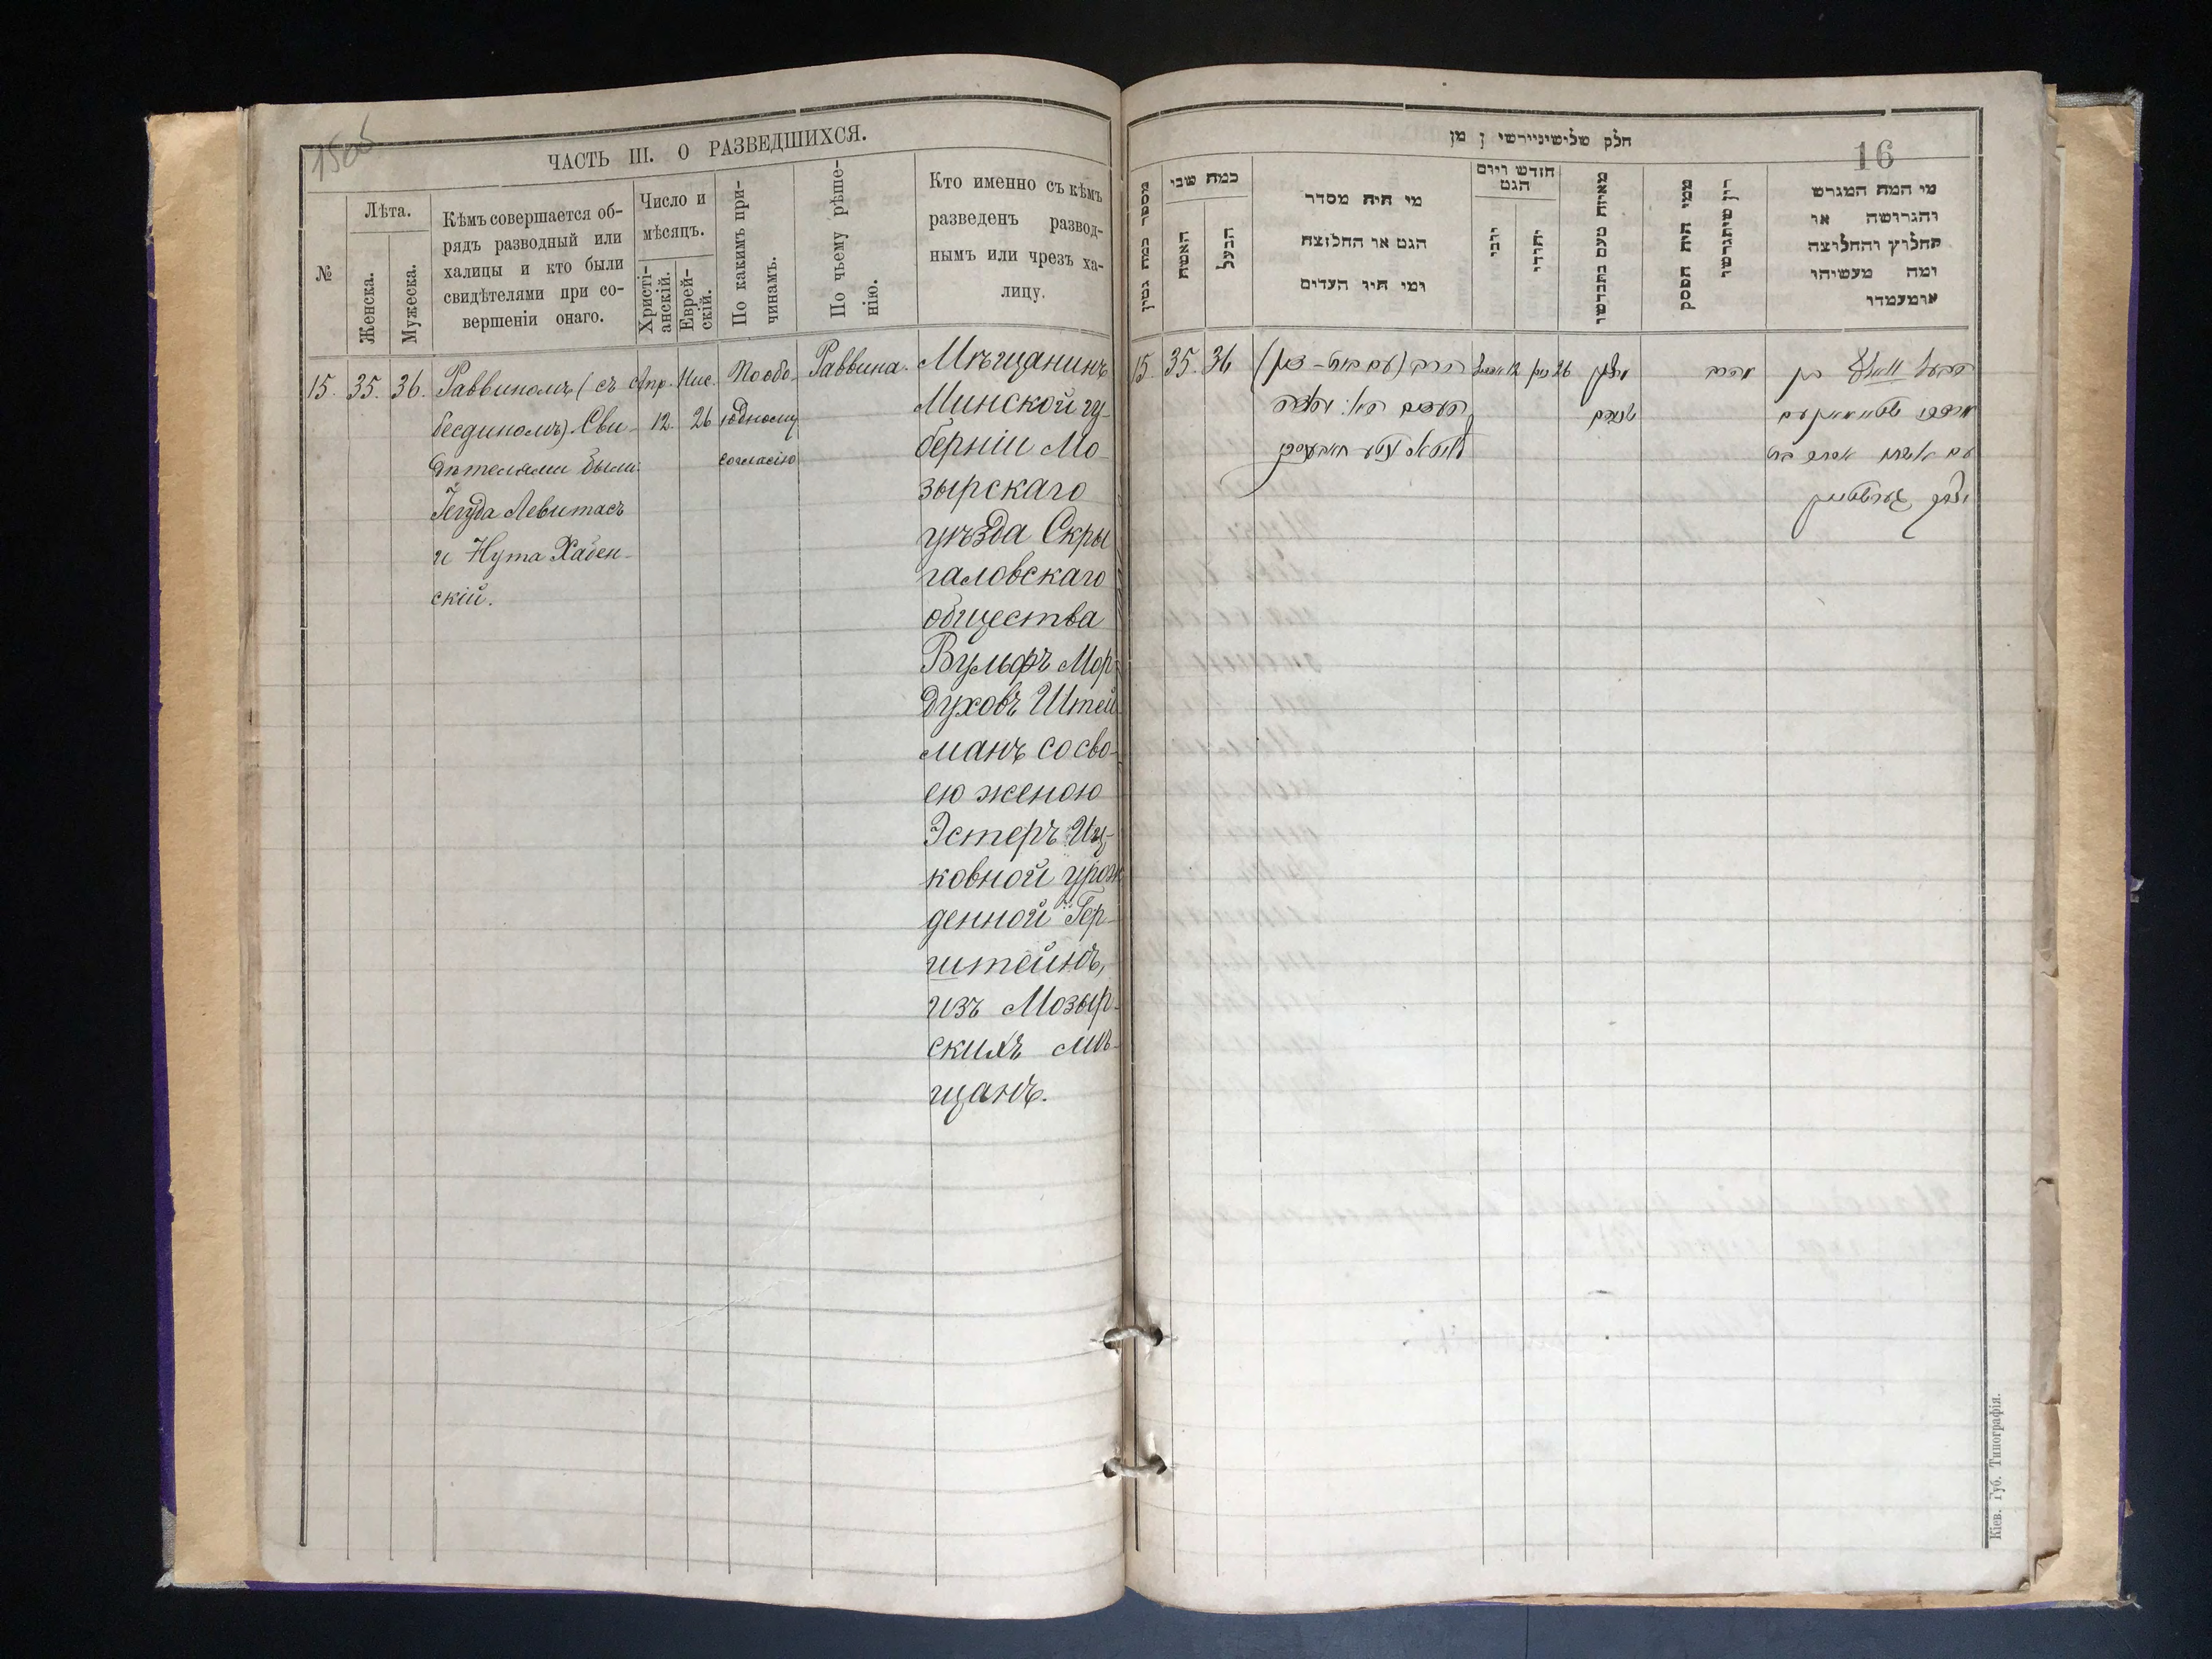 15об
ЧАСТЬ III. О РАЗВЕДШИХСЯ.
№
Лѣта.
Женска.
Мужеска.
Кѣмъ совершается об-
рядъ разводный или
халицы и кто были
свидѣтелями при со-
вершеніи онаго.
Число и
мѣсяцъ.
Христі-
анскій.
Еврей-
скій.
По какимъ при-
чинамъ.
По чьему рѣше-
нію.
Кто именно съ кѣмъ
разведенъ развод-
нымъ или чрезъ ха-
лицу.
15.
35.
36.
Раввиномъ (съ
бесдиномъ) Сви-
дѣтелями были:
Іегуда Левитасъ
и Нута Хабен-
скій.
Апр.
12.
Нис.
26
По обо-
юдному
согласію
Раввина.
Мѣщанинъ
Минской гу-
берніи Мо-
зырскаго
уѣзда Скры
галовскаго
общества
Вульфъ Мор-
духовъ Штей
манъ со сво-
ею женою
Эстеръ Иц-
ковной урож
денной Гер-
штейнъ,
изъ Мозыр-
скихъ мѣ-
щанъ.
16
חלק שלישי
מן
מספר כמה גטין
כמה שני
האשה
הבעל
מי היה מסדר
הגט או החלוצה
ומי היו העדים
חודש ויום
הגט
יהודי
ממי היה הפסק
דין שיתגרשו
מי המה המגרש
והגרושה או
החלוץ והחלוצה
ומה מעשיהו
ומעמדו
15.
35.
36
הרב (עם בית-דין)
העדים
12
26
הרב
הבעל וואלף בן
מרדכי שטיימאן עם
אשתו אסתר בת
יצחק גערשטיין
Кіев. Губ. Типографія.